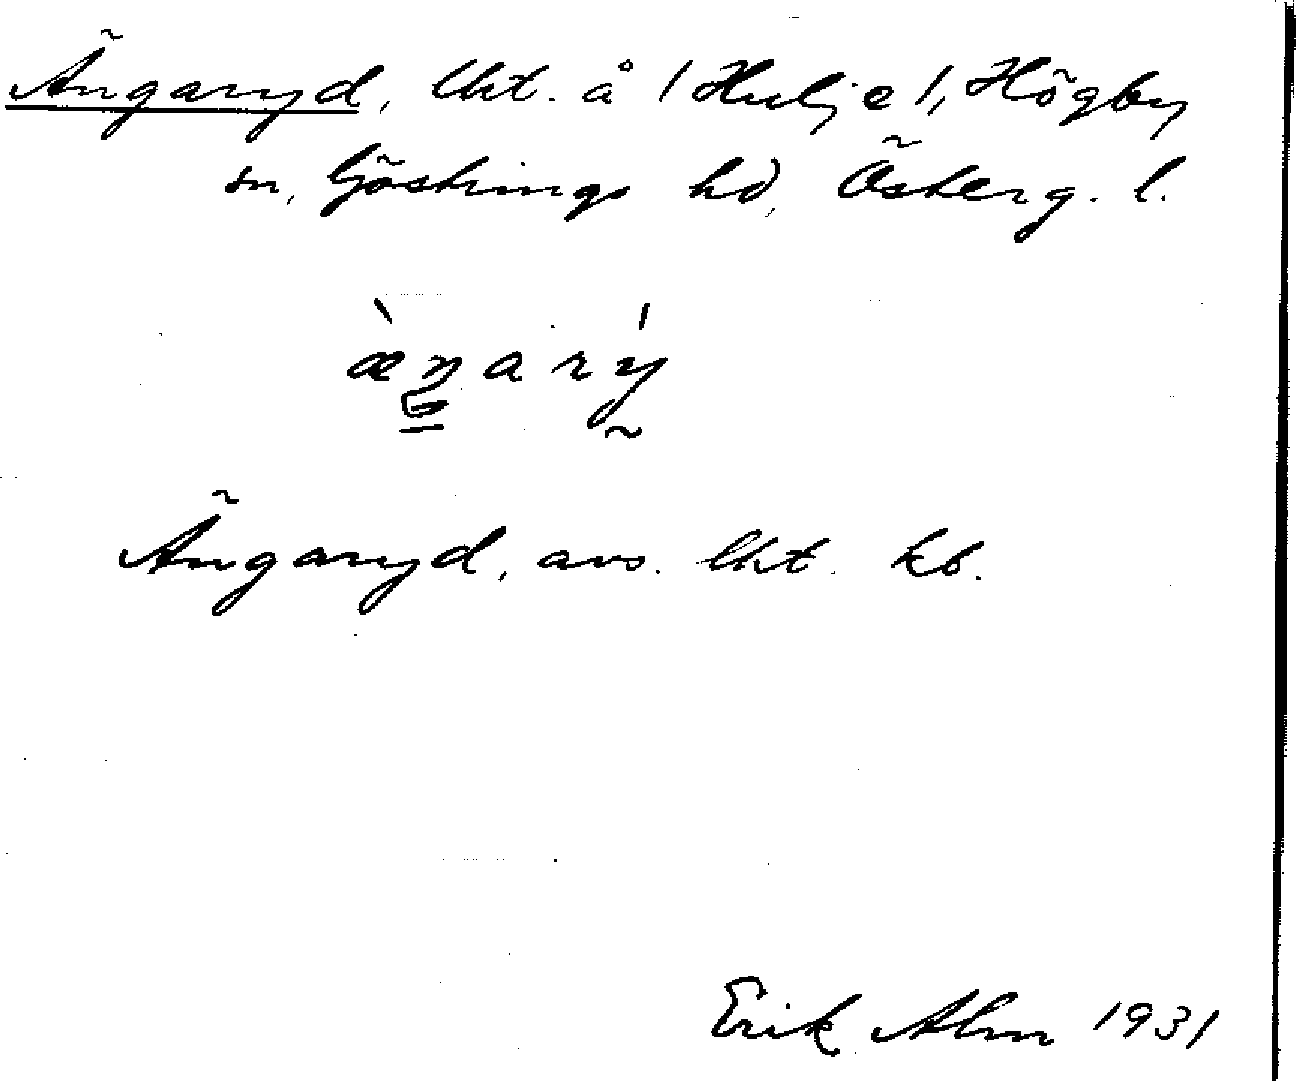 Ängaryd, lht. å /Hulje/, Högby
sn, Göstrings hd, Österg. l.
æ̀ŋarý
Ängaryd, avs. lht. kb.
Erik Alm 1931